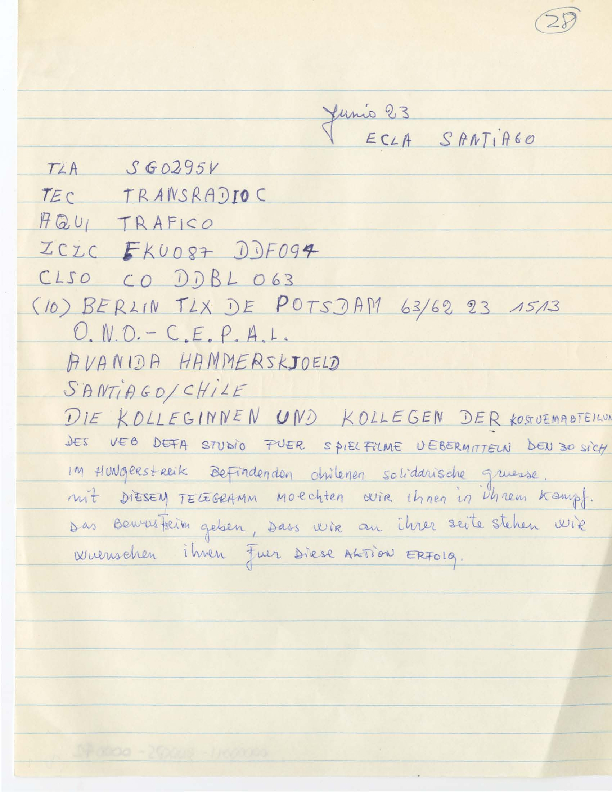 28
Junio 23
ECLA SANTIAGO
TLA SGO295V
TEC TRANSRADIO C
AQUI TRAFICO
ZCZC FKU087 DDF094
CLSO CO DDBL 063
(10) BERLIN TLX DE POTSDAM 63/62 23 1513
O.N.O.-C.E.P.A.L.
AVANIDA HAMMERSKJOELD
SANTIAGO/CHILE
DIE KOLLEGINNEN UND KOLLEGEN DER KOSTUEMABTEILUN
DES VEB DEFA STUDIO FUER SPIELFILME UEBERMITTELN DEN 30 SICH
IM HUNGERSTREIK BEFINDENDEN chilenen solidarische gruesse.
mit DIESEM TELEGRAMM MOECHTEN WIR Ihnen in ihrem Kampf.
DAS Bewustseim geben, DASS WIR an ihrer seite stehen WIR
wuenschen ihnen Fuer DIESE AKTION ERFOLG.